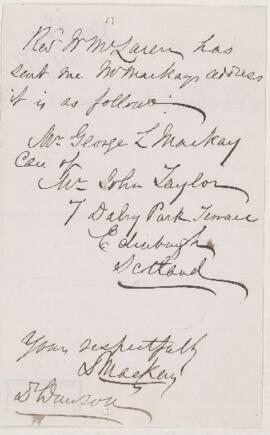 Revd W McLaren has
sent me Mr Mackays address
it is as follows
Mr George L Mackay
Care of
Mr John Taylor
7 Dalry Park Terrace
Edinburgh
Scotland
Your respectfully
D Mackay
Dr Dawson